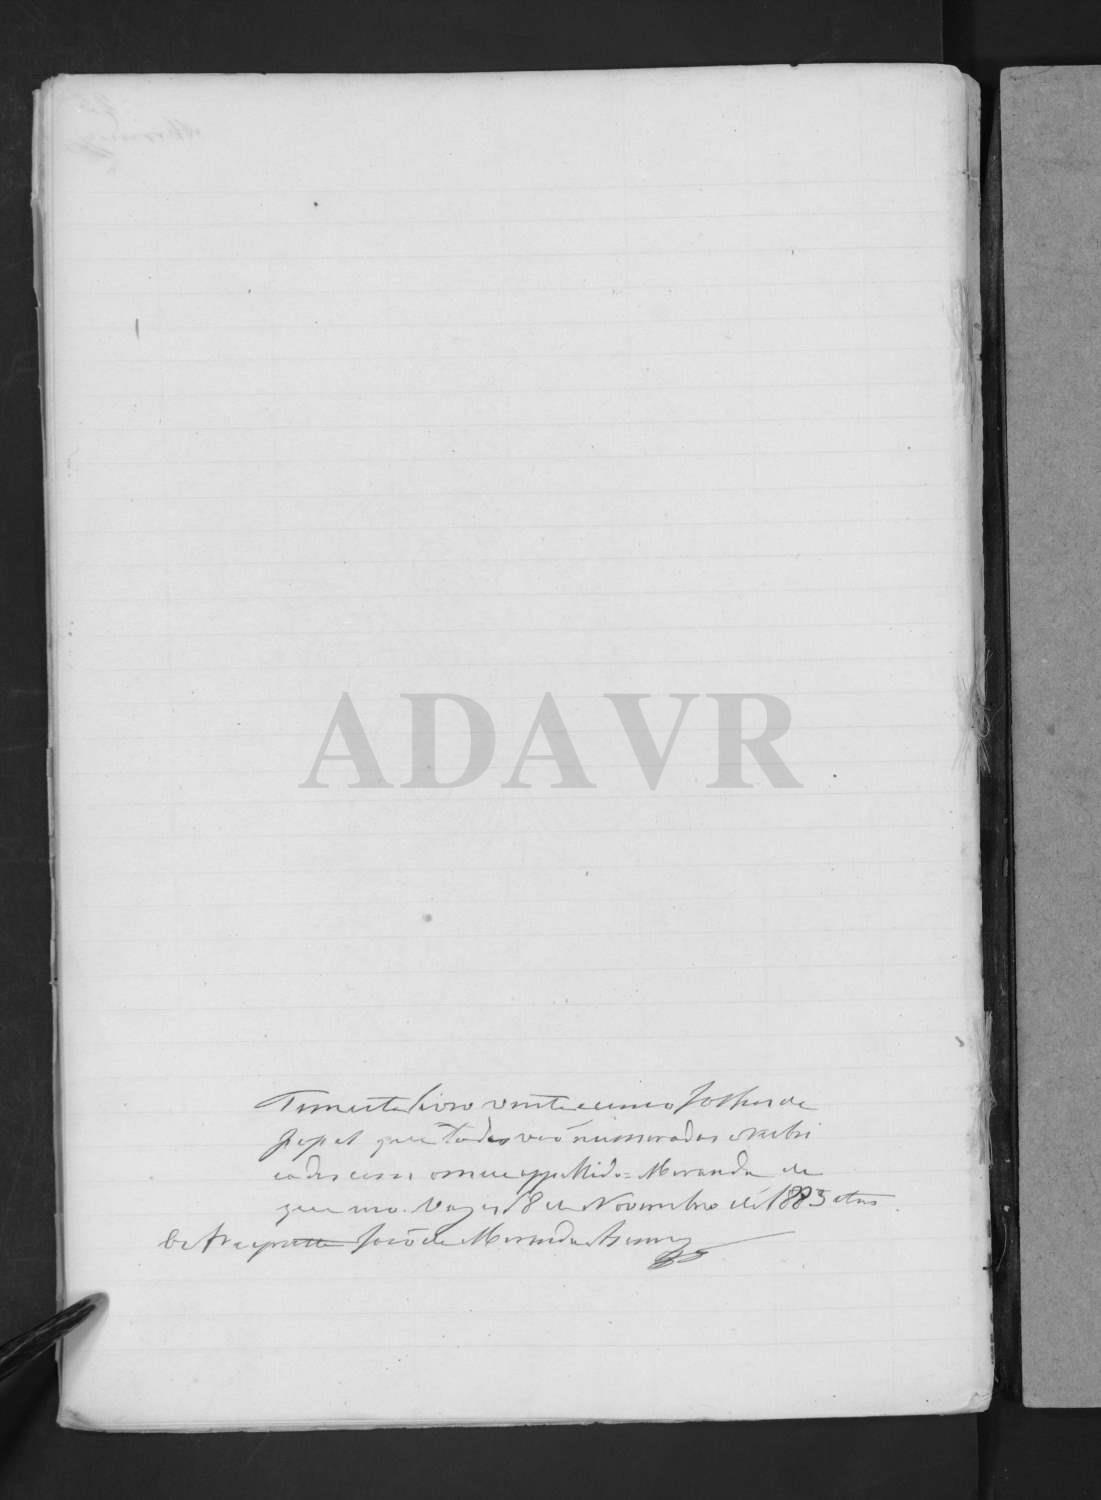 ADAVR
Tem este livro vinte e cinco folhas de
papel que todas vão numeradas e rubri
cadas com o meu appellido = Miranda de
que uso. Vagos 18 de Novembro de 1883
João de Miranda